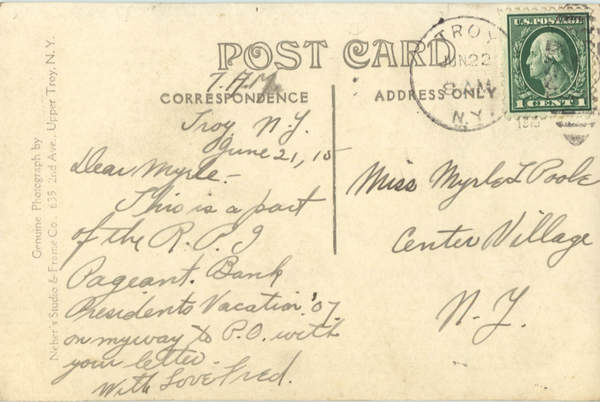 POST CARD
7. A.M.
CORRESPONDENCE
ADDRESS ONLY
Troy, N.Y.
June 21, 15
Dear Myrle:-
This is a part
of the R.P.I
Pageant. Bank
Presidents Vacation '07.
on my way to P.O. with
your letter.
With Love Fred.
Miss Myrle I Poole
Center Village
N.Y.
Genuine Photograph by
Neher's Studio & Frame Co. 635 2nd Ave., Upper Troy, N.Y.
TROY
JUN 22
8 AM
N.Y.
1915
U.S. POSTAGE
1 CENT 1